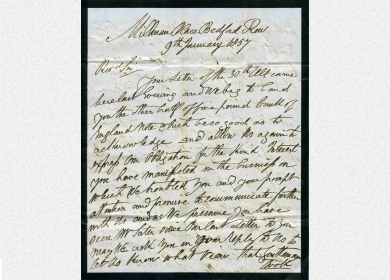 Millman Place Bedford Row
9th January 1857
Revd Sir
Your Letter of the 30th Ult came
here last evening and we beg to hand
you the other half of five pound Bank of
England Note which be so good as to
acknowledge and allow us again to
express our obligation for the kind Interest
you have manifested in the business on
which We troubled you and your prompt
attention and promise to communicate further
with us and as We presume you have
seen Mr since our last Letter to you
may We ask you in your reply to us to
let us know what